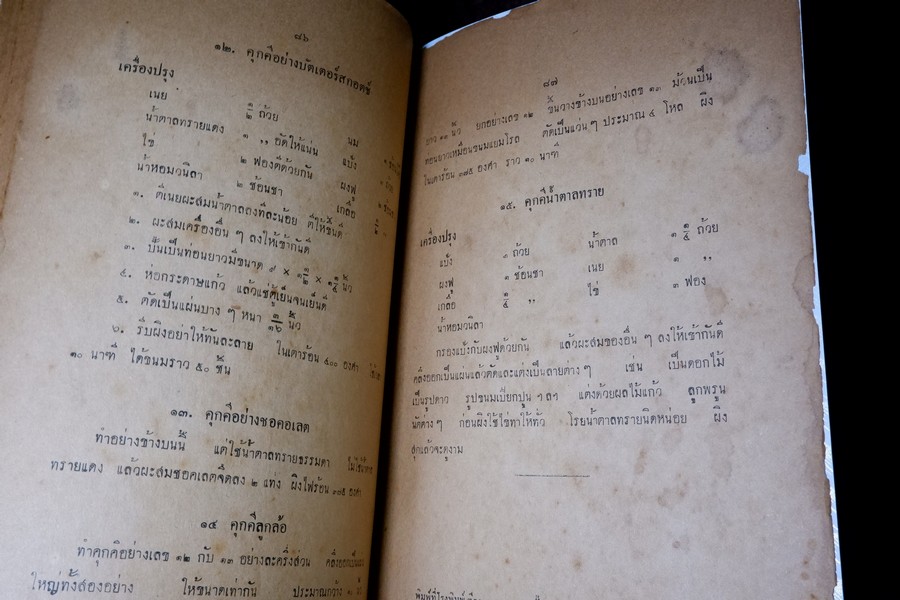 ๘๖
๑๒. คุกคีอย่างบัตเตอร์สกอตช์
เครื่องปรุง
เนย ๑/๒ ถ้วย นม
น้ำตาลทรายแดง ๑ ,, อัดให้แน่น แป้ง
ไข่ ๒ ฟองตีด้วยกัน ผงฟู
น้ำหอมวนิลา ๒ ช้อนชา เกลือ
๑. ตีเนยผสมน้ำตาลลงทีละน้อย ตีให้ขึ้นดี
๒. ผะสมเครื่องอื่น ๆ ลงให้เข้ากันดี
๓. ปั้นเป็นท่อนยาวมีขนาด ๙ × ๑ ๑/๒ × ๑ ๑/๔ นิ้ว
๔. ห่อกระดาษแก้ว แล้วแช่ตู้เย็นจนเย็นดี
๕. ตัดเป็นแผ่นบาง ๆ หนา ๓/๑๖ นิ้ว
๖. รีบผิงอย่าให้ทันละลาย ในเตาร้อน ๔๐๐ องศา
๑๐ นาที ได้ขนมราว ๕๐ ชิ้น
๑๓. คุกคีอย่างชอคอเลต
ทำอย่างข้างบนนี้ แต่ใช้น้ำตาลทรายธรรมดา ไม่ใช้น้ำตาล
ทรายแดง แล้วผะสมชอคเลตจืดลง ๒ แท่ง ผิงไฟร้อน ๓๗๕ องศา
๑๔ คุกคีลูกล้อ
ทำคุกคีอย่างเลข ๑๒ กับ ๑๓ อย่างละครึ่งส่วน คลึงออกเป็น
ใหญ่ทั้งสองอย่าง ให้ขนาดเท่ากัน ประมาณกว้าง
๘๗
ยาว ๑๒ นิ้ว ยกอย่างเลข ๑๒ ขึ้นวางข้างบนอย่างเลข ๑๓ ม้วนเป็น
ท่อนยาวเหมือนขนมแยมโรล ตัดเป็นแว่นๆ ประมาณ ๔ โหล ผิง
ในเตาร้อน ๓๗๕ องศา ราว ๑๐ นาที
๑๕. คุกคีน้ำตาลทราย
เครื่องปรุง
แป้ง ๓ ถ้วย น้ำตาล ๑ ๑/๔ ถ้วย
ผงฟู ๑ ช้อนชา เนย ๑ ,,
เกลือ ๑/๔ ,, ไข่ ๓ ฟอง
น้ำหอมวนิลา
กรองแป้งกับผงฟูด้วยกัน แล้วผะสมของอื่น ๆ ลงให้เข้ากันดี
คลึงออกเป็นแผ่นแล้วตัดและแต่งเป็นลายต่าง ๆ เช่น เป็นดอกไม้
เป็นรูปดาว รูปขนมเปียกปูน ฯลฯ แต่งด้วยผลไม้แก้ว ลูกพรูน
นัตต่างๆ ก่อนผิงใช้ไข่ทาให้ทั่ว โรยน้ำตาลทรายนิดหน่อย ผิง
สุกแล้วจะดูงาม